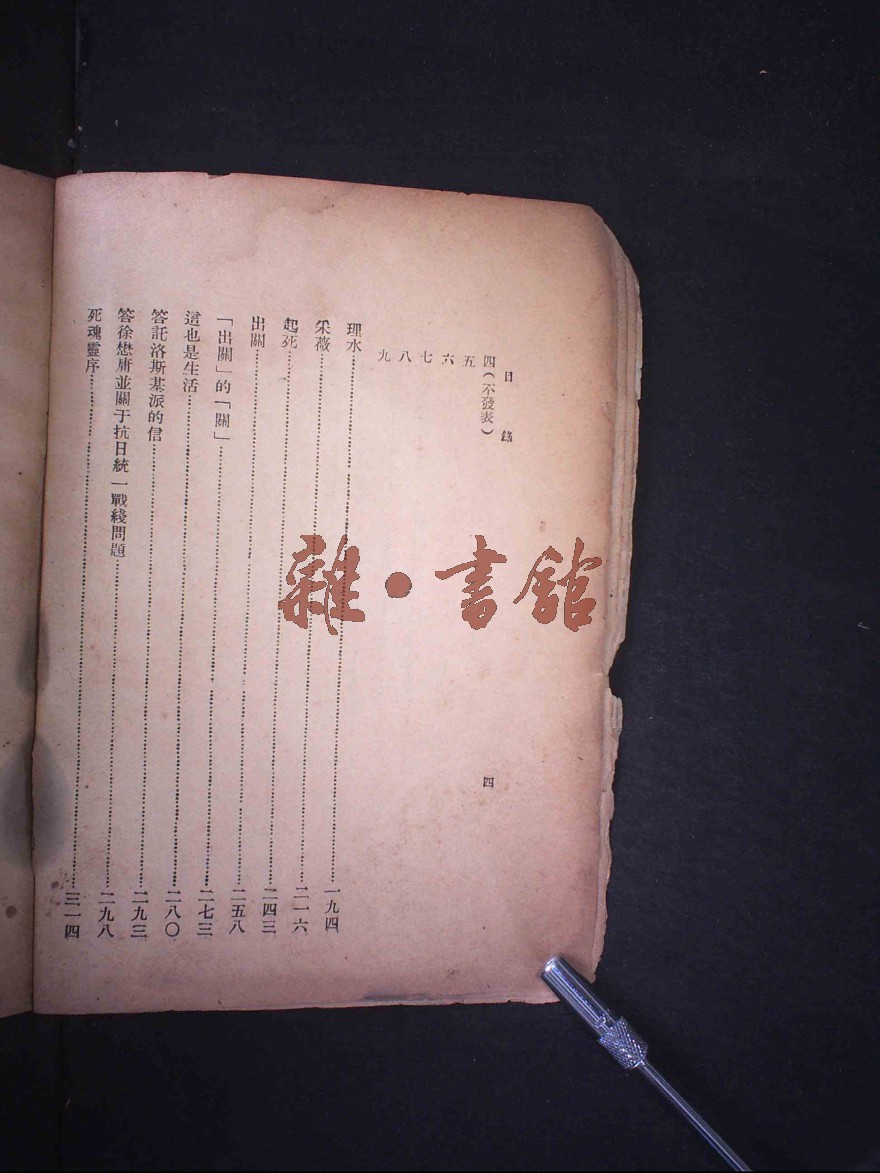 目錄
四
四(不發表)
五
六
七
八
九
理水……一九四
采薇……二一六
起死……二四三
出關……二五八
「出關」的「關」……二七三
這也是生活……二八〇
答託洛斯基派的信……二九三
答徐懋庸並關于抗日統一戰綫問題……二九八
死魂靈序……三一四
雜·書館